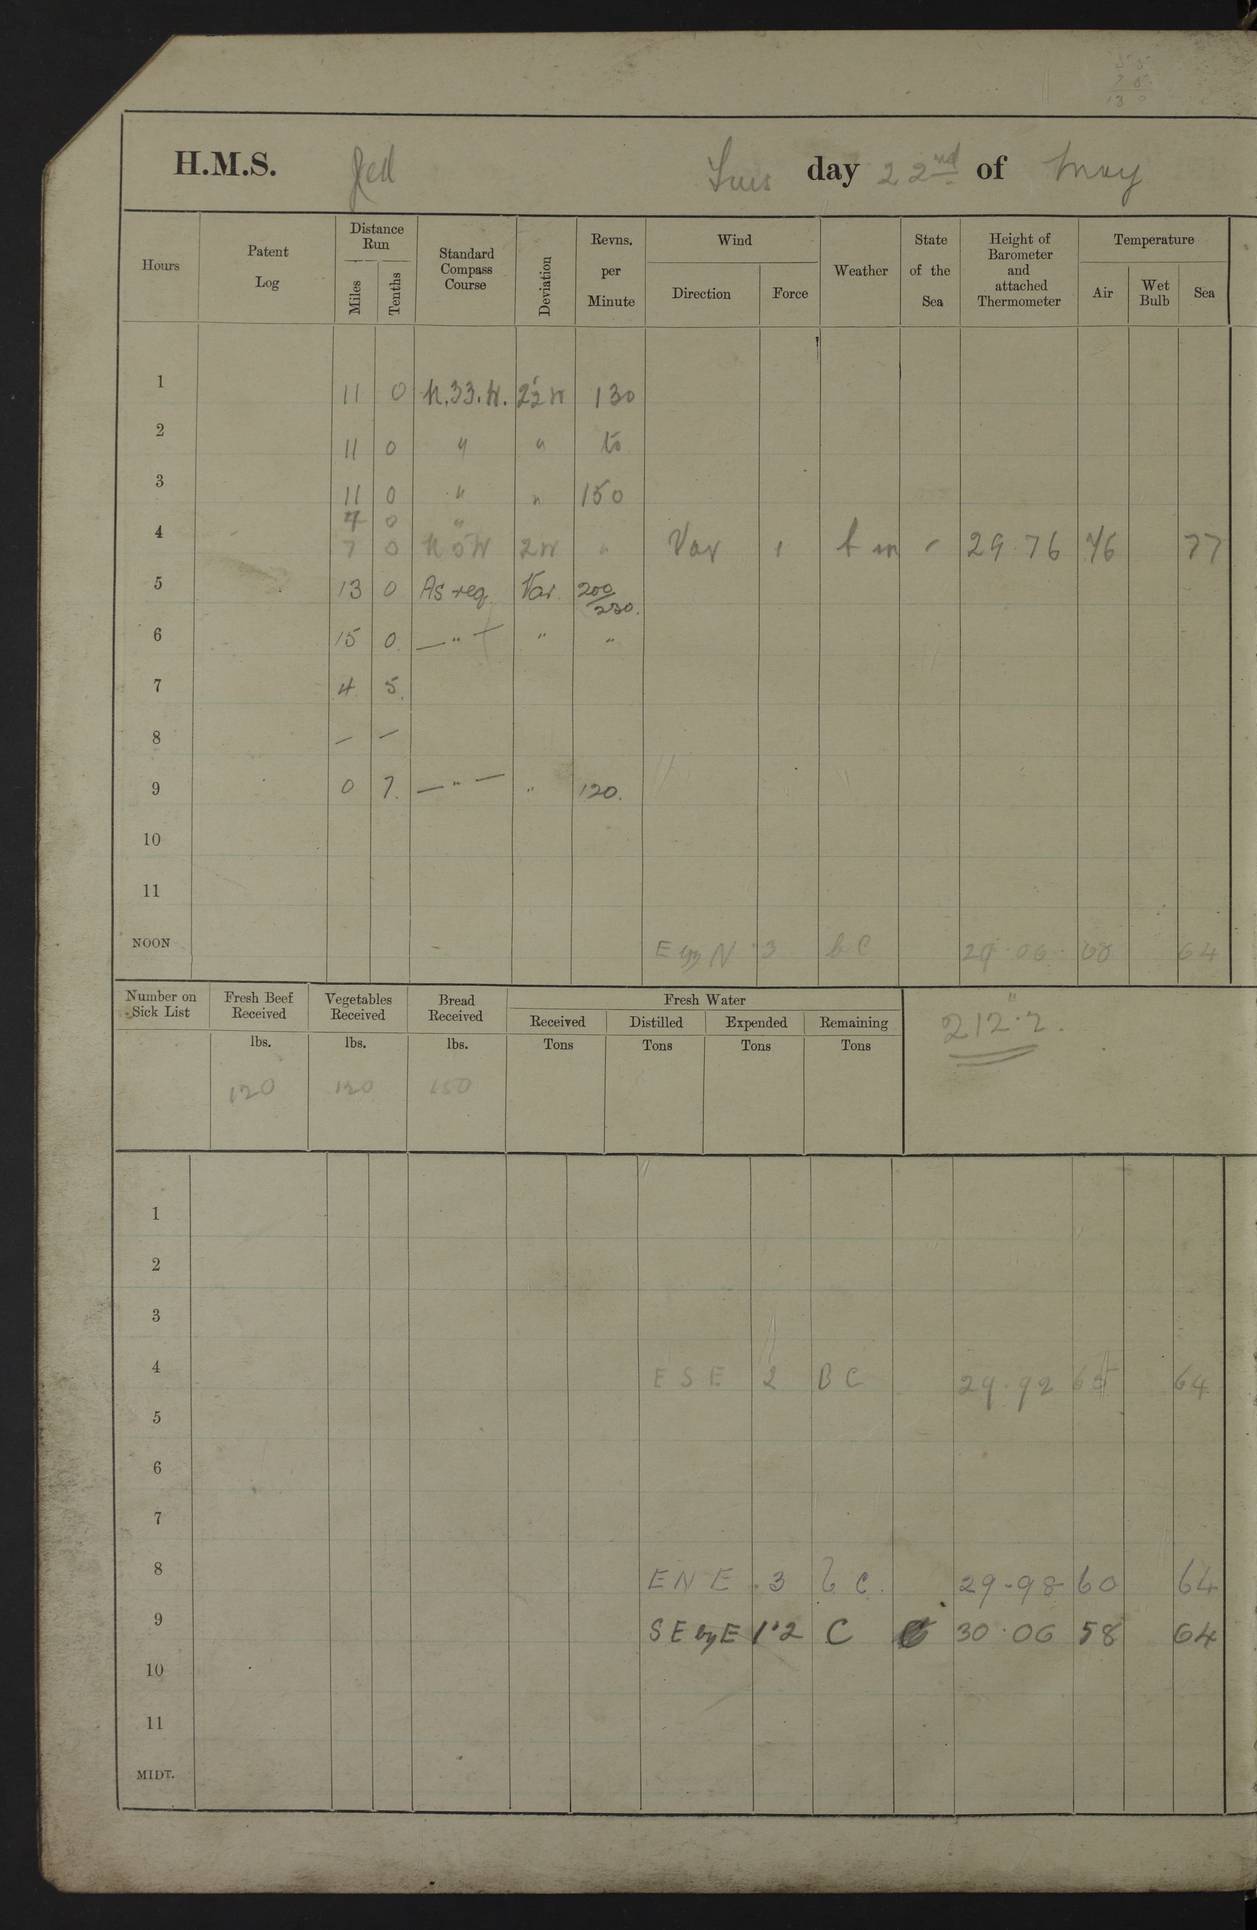 H.M.S. Jed Tues day 22nd of May
Hours
Patent Log
Distance Run
Miles
Tenths
Standard Compass Course
Deviation
Revns. per Minute
Wind
Direction
Force
Weather
State of the Sea
Height of Barometer and attached Thermometer
Temperature
Air
Wet Bulb
Sea
1 11 0 N.33.W. 130
2 11 0 " " to
3 11 0 " " 150
7 0 "
4 7 0 N 5 W 2 W " Var 1 29.76 77
5 13 0 As req Var 200/230.
6 15 0 — " — " "
7 4 5.
8 — —
9 0 7. — " — " 120.
10
11
NOON E by N 3 b C 64
Number on Sick List
Fresh Beef Received
Vegetables Received
Bread Received
Fresh Water
Received
Distilled
Expended
Remaining
lbs. lbs. lbs. Tons Tons Tons Tons
120 120 150
212.2.
1
2
3
4 E S E 2 B C 29.92 64
5
6
7
8 E N E 3 b c. 29.98 60 64
9 S E by E 1.2 C 30.06 58 64
10
11
MIDT.